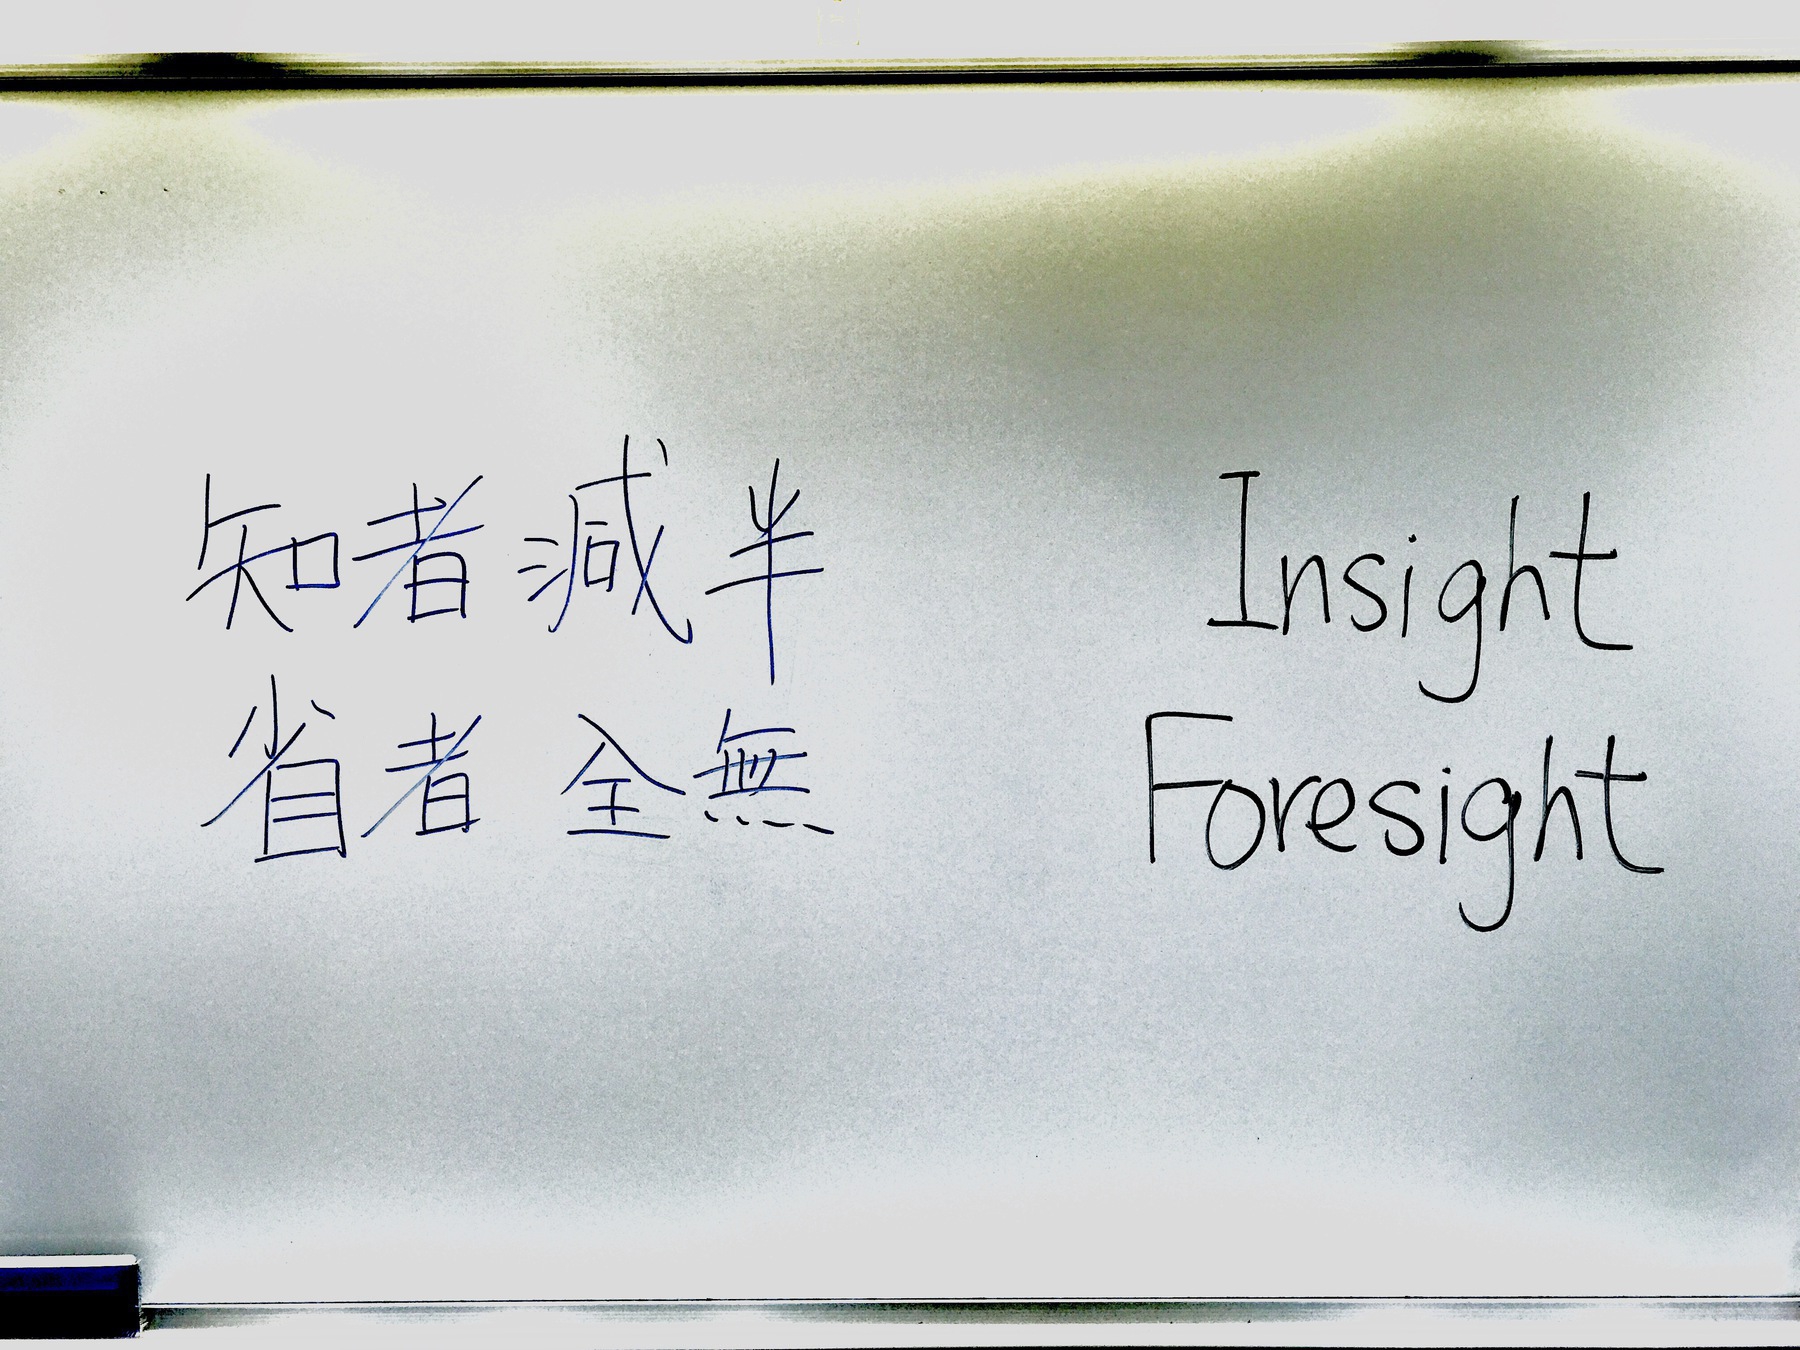 知者減半
省者全無
Insight
Foresight